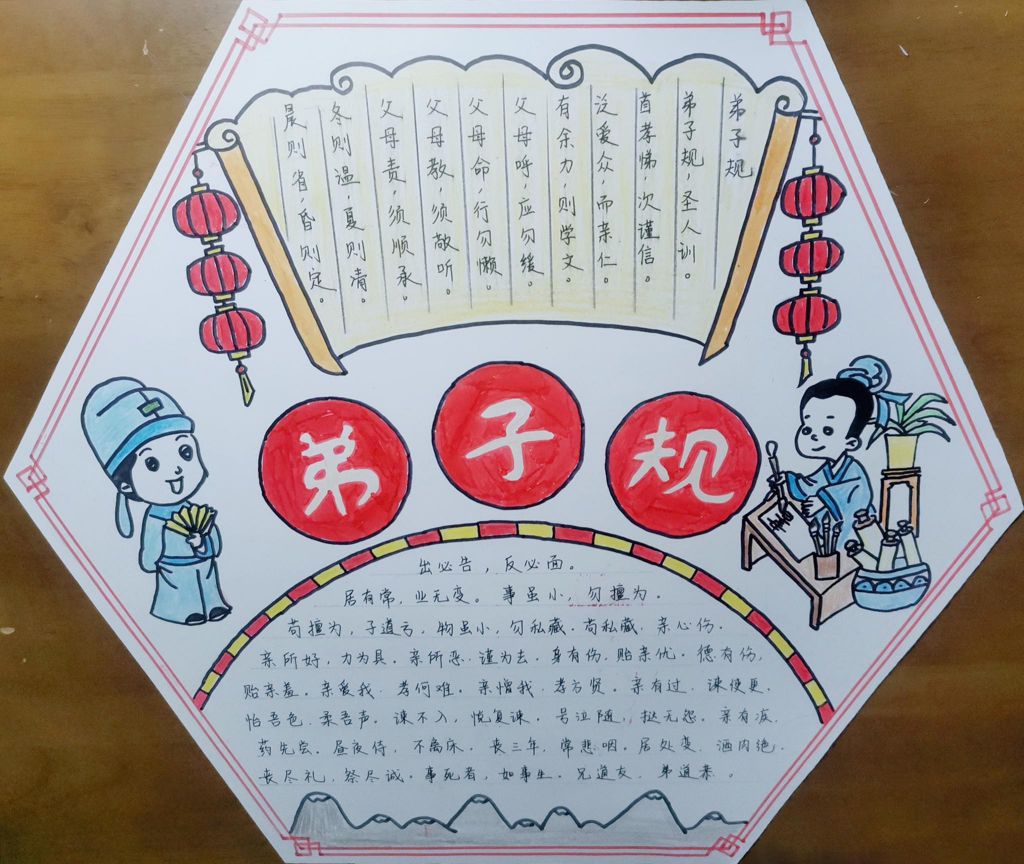 弟子规
弟子规，圣人训。
首孝悌，次谨信。
泛爱众，而亲仁。
有余力，则学文。
父母呼，应勿缓。
父母命，行勿懒。
父母教，须敬听。
父母责，须顺承。
冬则温，夏则凊。
晨则省，昏则定。
弟子规
出必告，反必面。
居有常，业无变。事虽小，勿擅为。
苟擅为，子道亏，物虽小，勿私藏．苟私藏．亲心伤．
亲所好，力为具．亲所恶．谨为去．身有伤，贻亲忧．德有伤，
贻亲羞．亲爱我．孝何难．亲憎我．孝方贤．亲有过．谏使更．
怡吾色．柔吾声．谏不入，悦复谏．号泣随，挞无怨．亲有疾．
药先尝．昼夜侍，不离床．丧三年，常悲咽．居处变．酒肉绝．
丧尽礼，祭尽诚．事死者，如事生．兄道友，弟道恭。